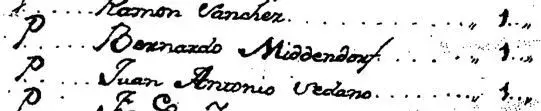 Ramon Sanchez ........ „ 1 „
P ..... Bernardo Middendorf ........ „ 1 „
P ..... Juan Antonio Vedano ........ „ 1 „
P